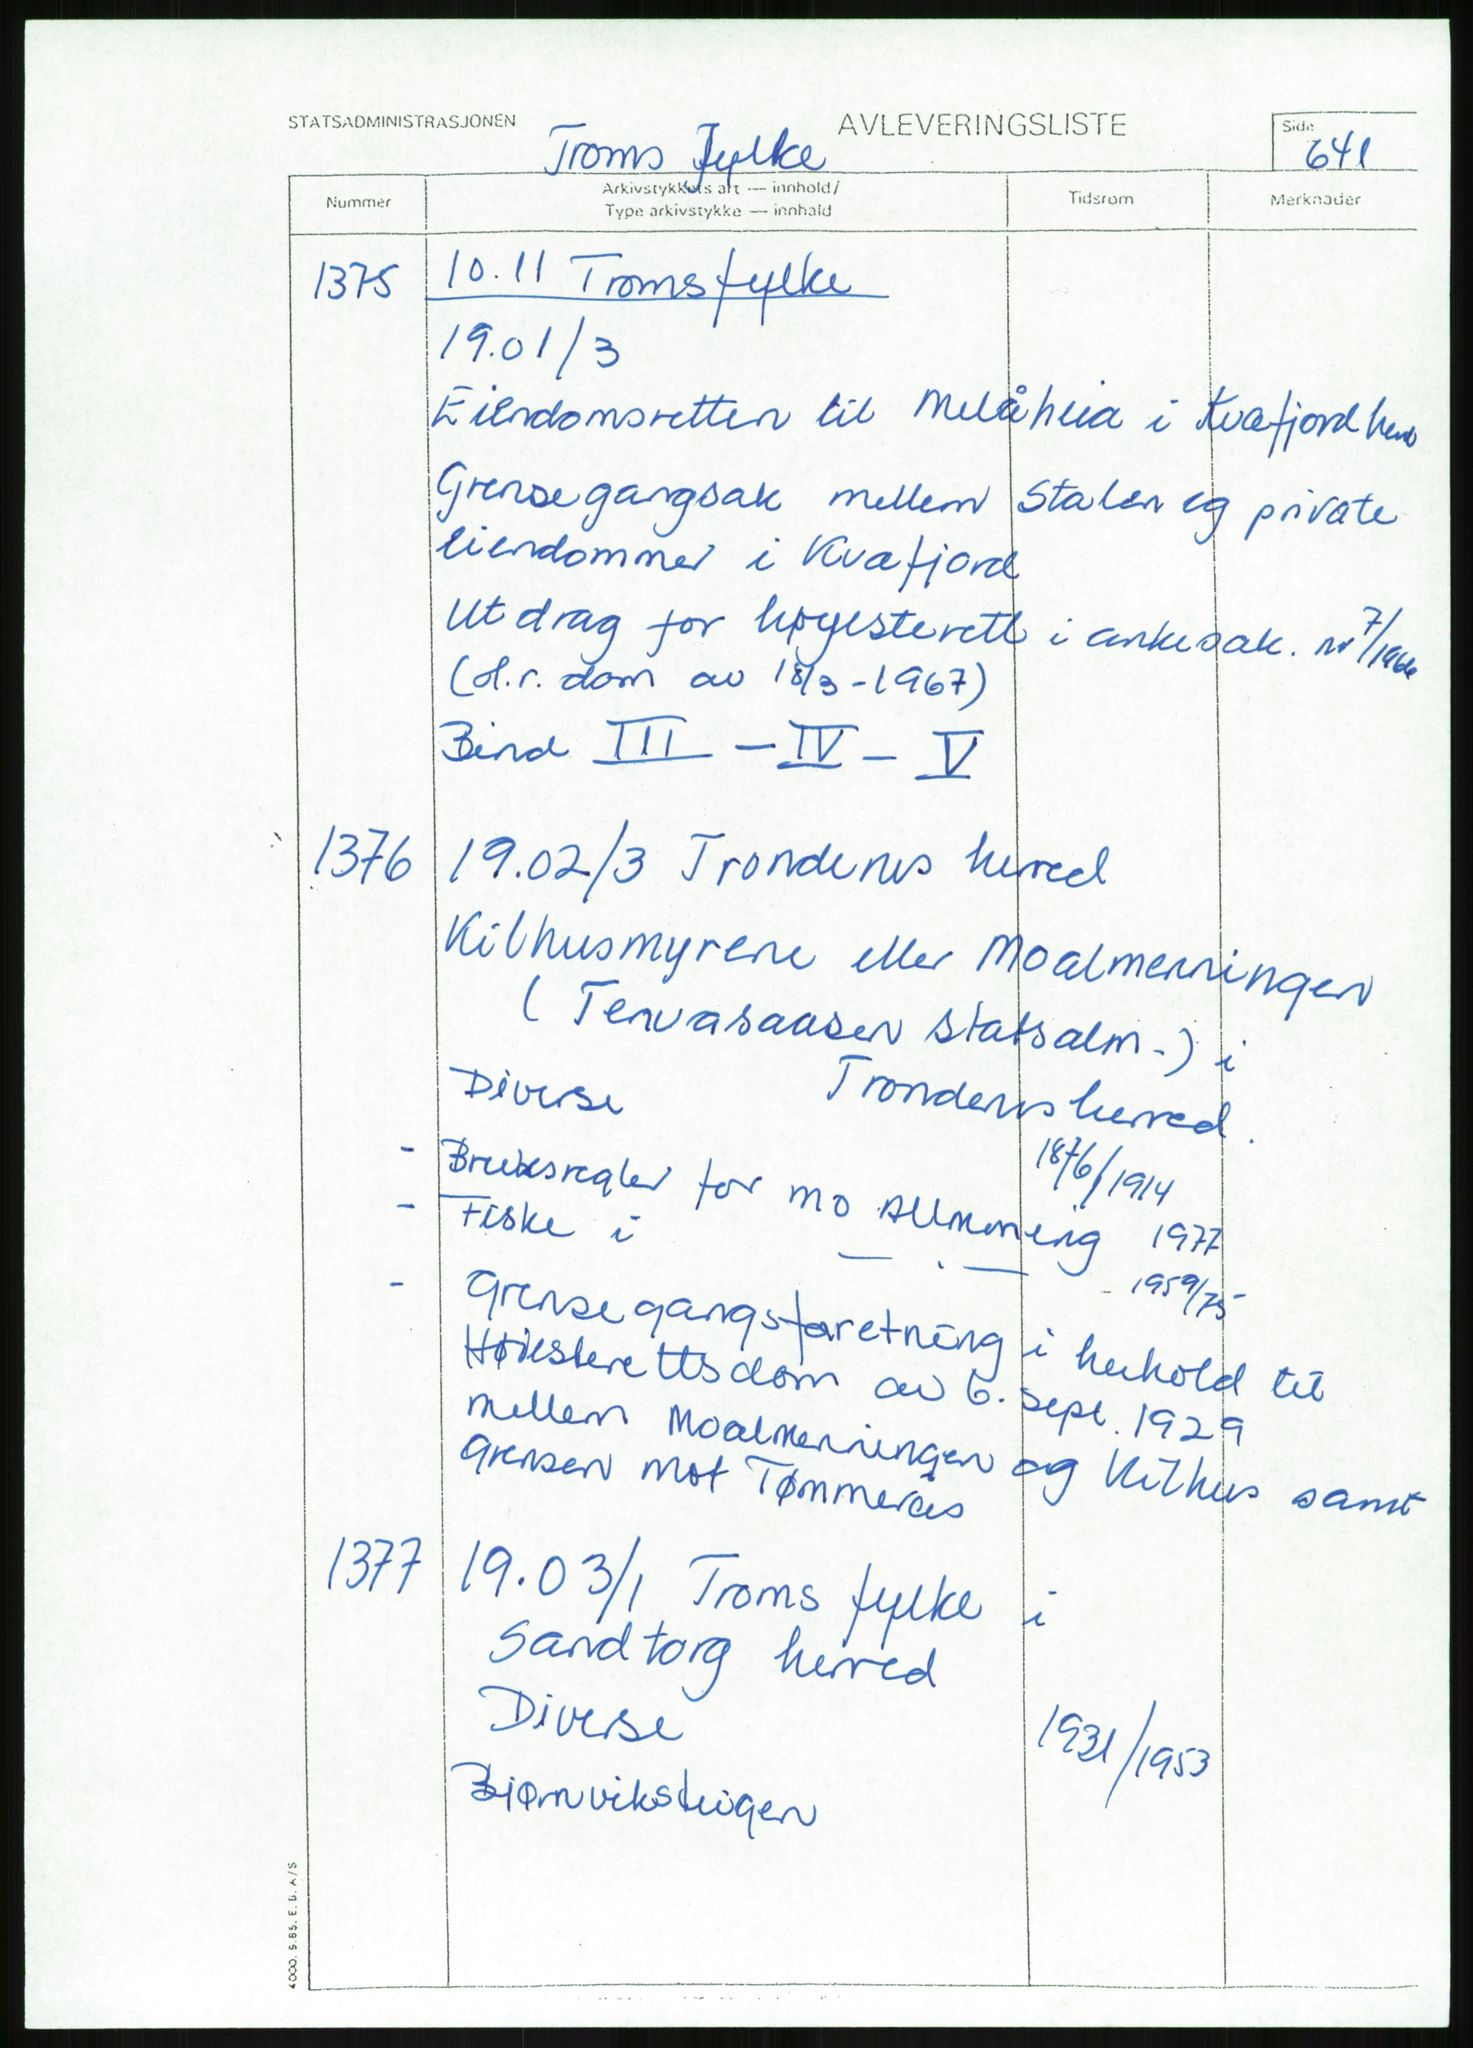 STATSADMINISTRASJONEN
AVLEVERINGSLISTE
Side
641
Troms Fylke
Nummer
Arkivstykkets art — innhold/
Type arkivstykke — innhald
Tidsrom
Merknader
1375 10.11 Troms fylke
19.01/3
Eiendomsretten til Melåheia i Kvæfjord
Grensegangsak mellem Staten og private
eiendommer i Kvæfjord
Utdrag for høyesterett i ankesak. nr 7/1966
(H.r. dom av 18/3-1967)
Bind III – IV – V
1376 19.02/3 Trondenes herred
Kilhusmyrene eller Moalmenningen
(Tervasaasen statsalm-) i
Diverse Trondenes herred.
1876/1914
- Bruksregler for Mo Allmening 1977
- Fiske i — . — - 1959/75
- Grensegangsforretning i henhold til
Høiesterettsdom av 6. sept. 1929
mellem Moalmenningen og Kilhus samt
grensen mot Tømmerås
1377 19.03/1 Troms fylke i
Sandtorg herred
Diverse 1931/1953
Bjørnvikskogen
4000. 5.85. E. B. A/S